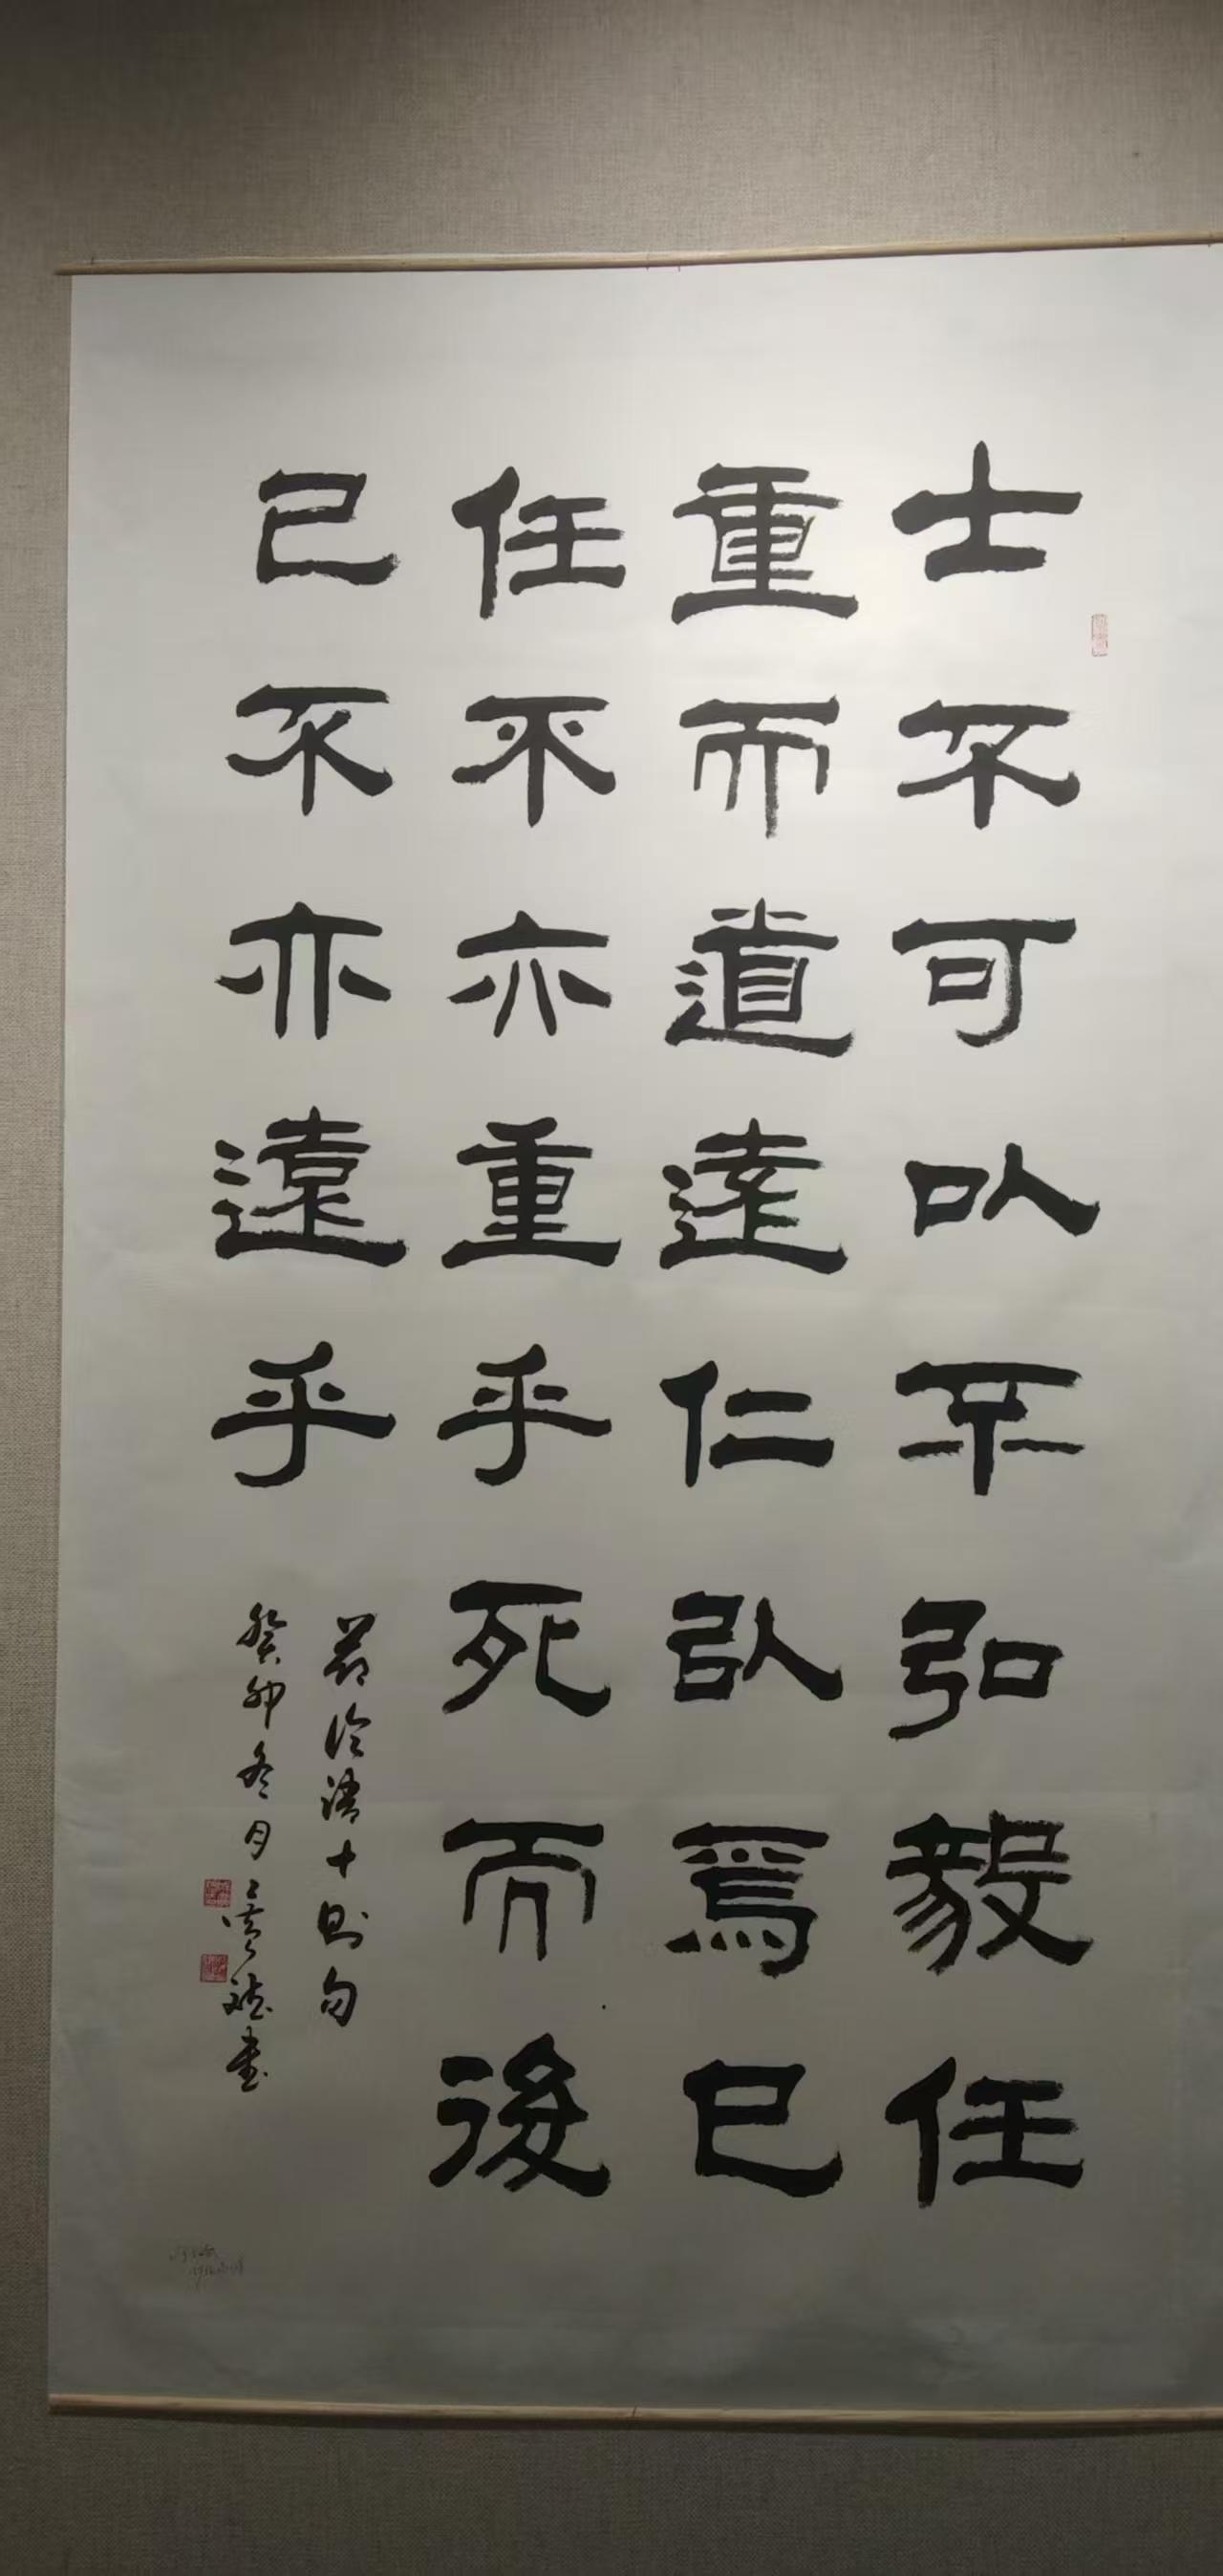 士不可以不弘毅任
重而道遠仁以爲己
任不亦重乎死而後
已不亦遠乎
節論語十則句
癸卯冬月
書